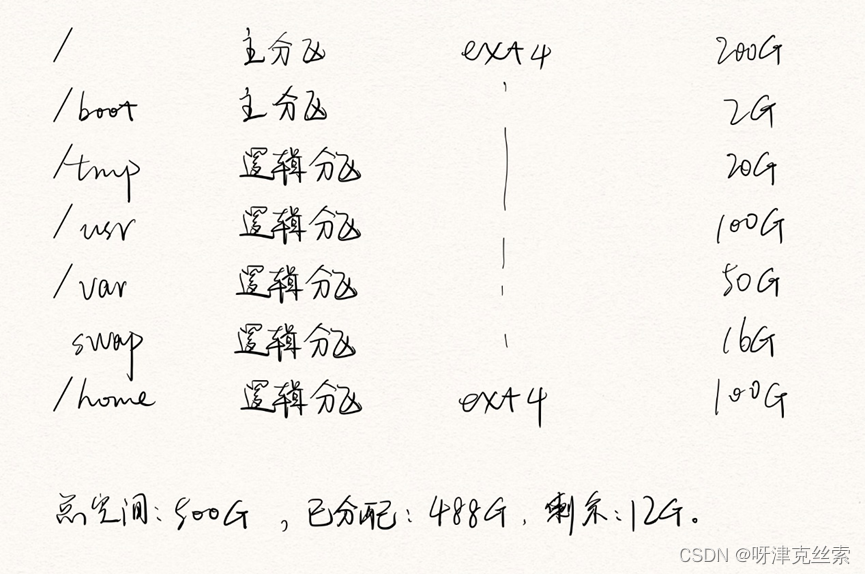 / 主分区 ext4 200G
/boot 主分区 2G
/tmp 逻辑分区 20G
/usr 逻辑分区 100G
/var 逻辑分区 50G
swap 逻辑分区 16G
/home 逻辑分区 ext4 100G
总空间:500G,已分配:488G,剩余:12G。
CSDN @呀津克丝索